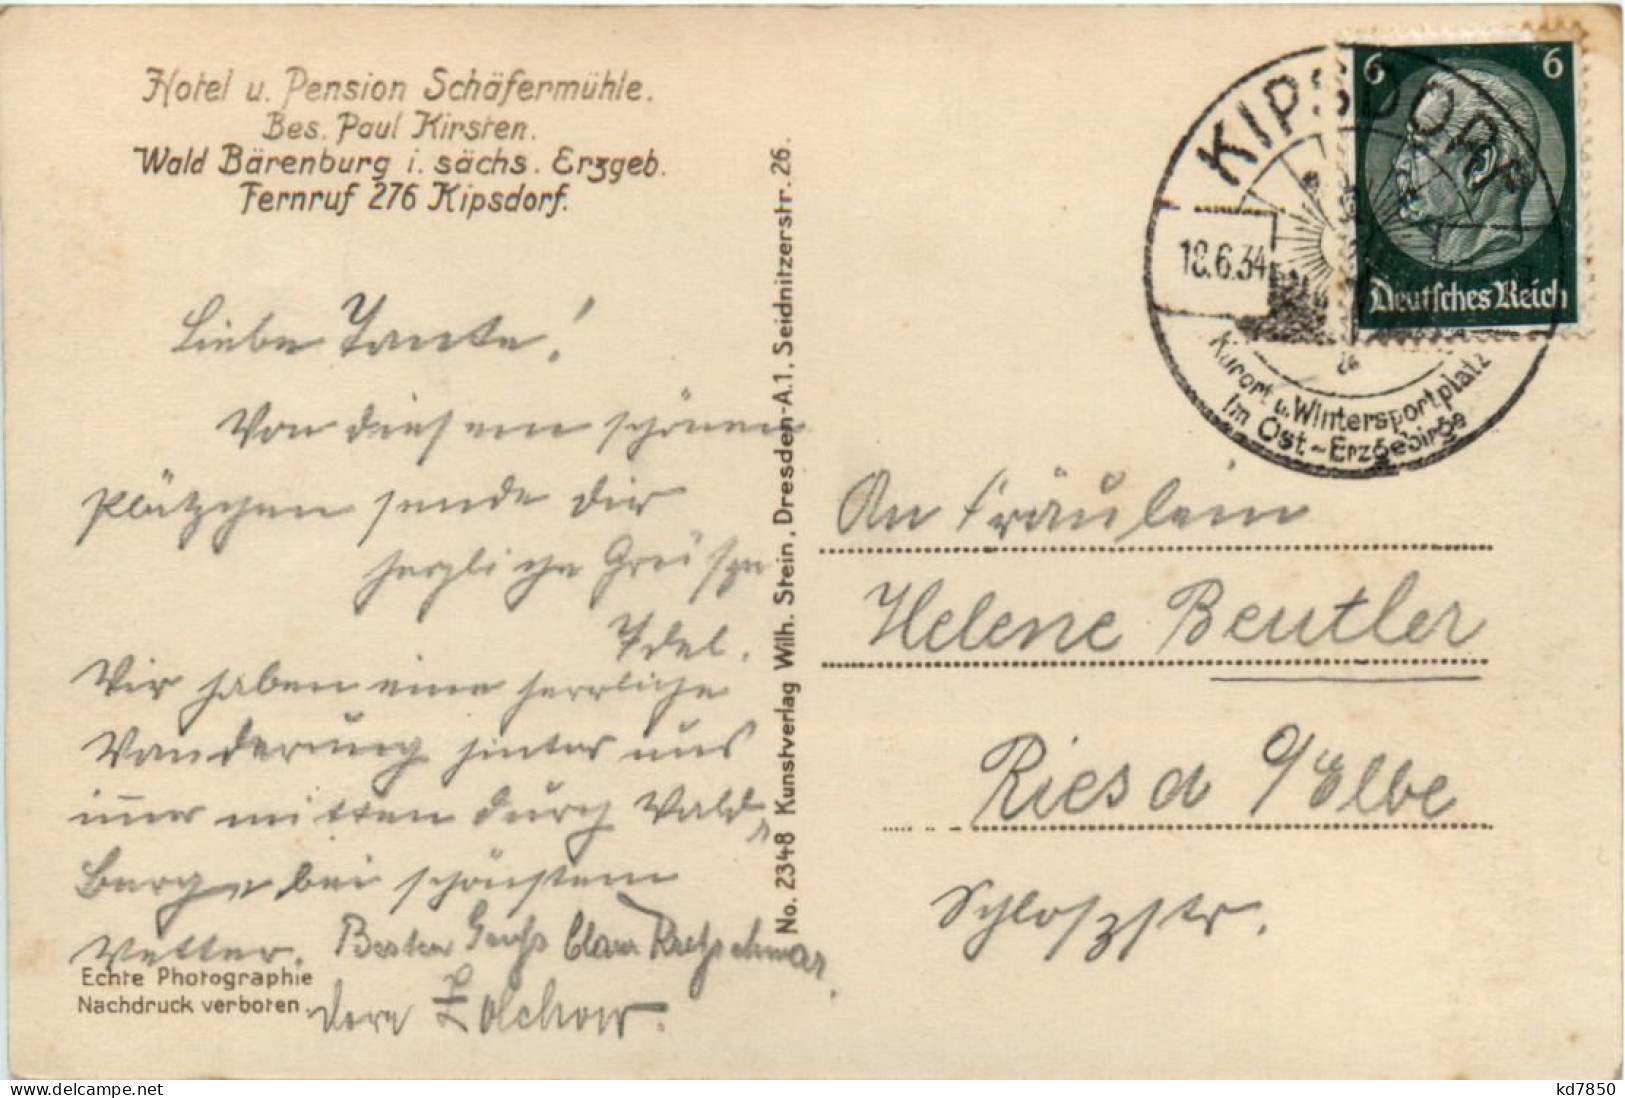 Hotel u. Pension Schäfermühle.
Bes. Paul Kirsten.
Wald Bärenburg i. sächs. Erzgeb.
Fernruf 276 Kipsdorf.
Liebe Tante!
Von diesem schönen
Plätzchen sende dir
herzliche Grüße
Idel.
Wir haben eine herrliche
Wanderung hinter uns
immer mitten durch Wald,
Berge bei schönstem
Wetter.
Besten Gruß Clara Kretzschmar,
Dora Zolchow.
Echte Photographie
Nachdruck verboten.
No. 2348 Kunstverlag Wilh. Stein, Dresden-A.1, Seidnitzerstr. 26.
KIPSDORF
18.6.34
Kurort u. Wintersportplatz
im Ost-Erzgebirge
6 6
Deutsches Reich
An Fräulein
Helene Beutler
Riesa a/Elbe
Schloßstr.
www.delcampe.net
kd7850